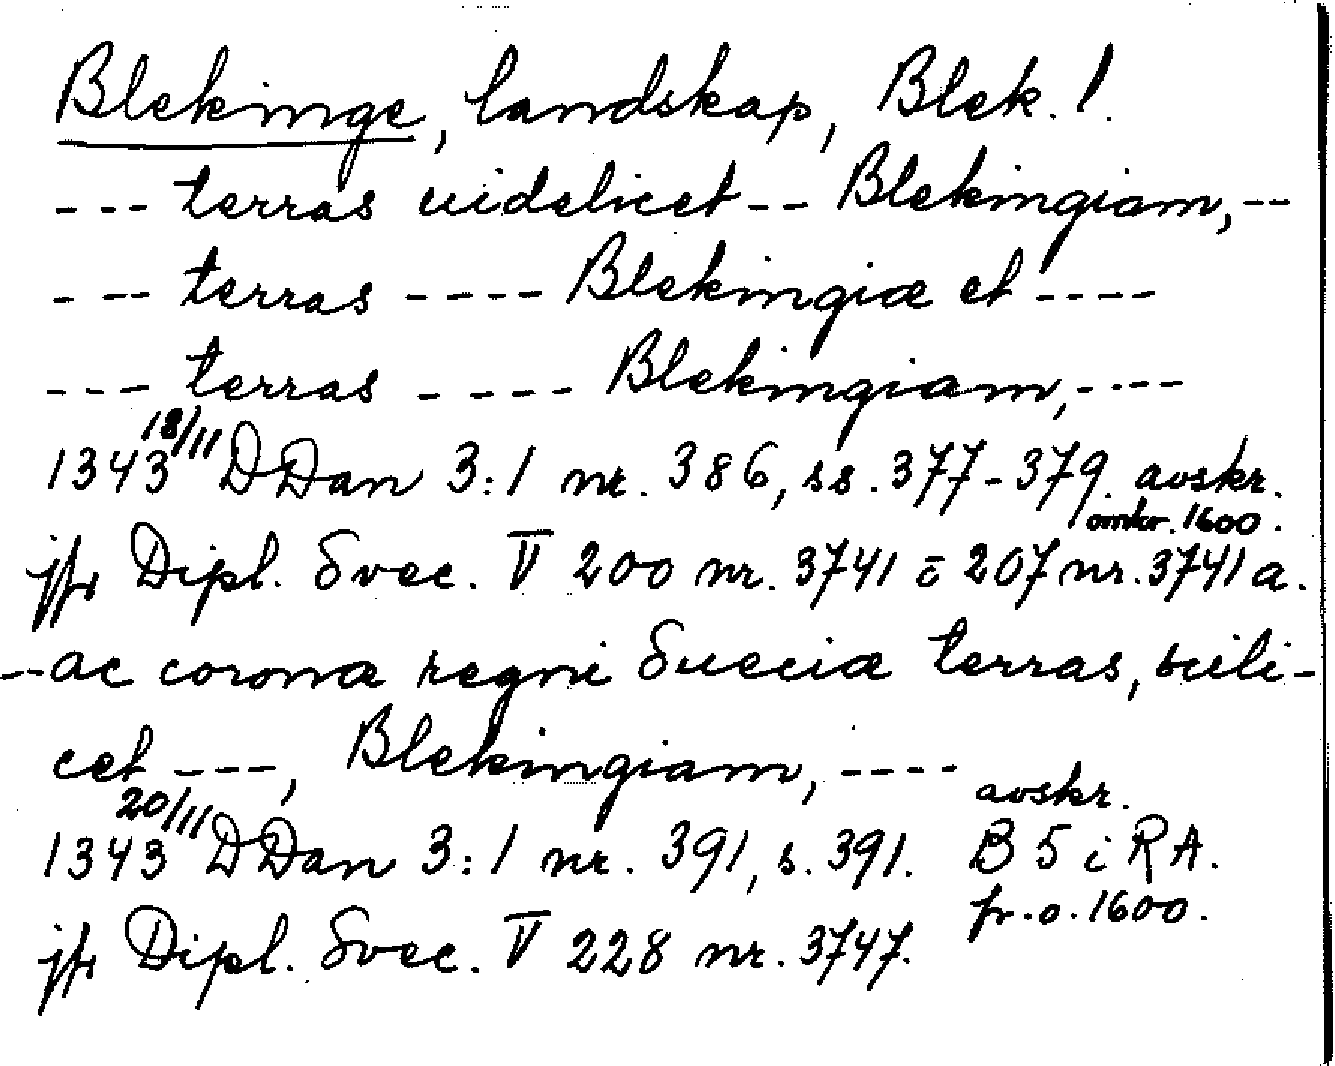 Blekinge, landskap, Blek. !.
--- terras uidelicet -- Blekingiam, --
- -- terras ---- Blekingiæ et ----
--- terras ---- Blekingiam, ----
1343 18/11 DDan 3:1 nr. 386, ss. 377-379. avskr.
omkr. 1600.
jfr Dipl. Svec. V 200 nr. 3741 o 207 nr. 3741 a.
--ac corona regni Sueciæ terras, scili-
cet ---, Blekingiam, ----
avskr.
1343 20/11 DDan 3:1 nr. 391, s. 391. B 5 i RA.
fr. o. 1600.
jfr Dipl. Svec. V 228 nr. 3747.